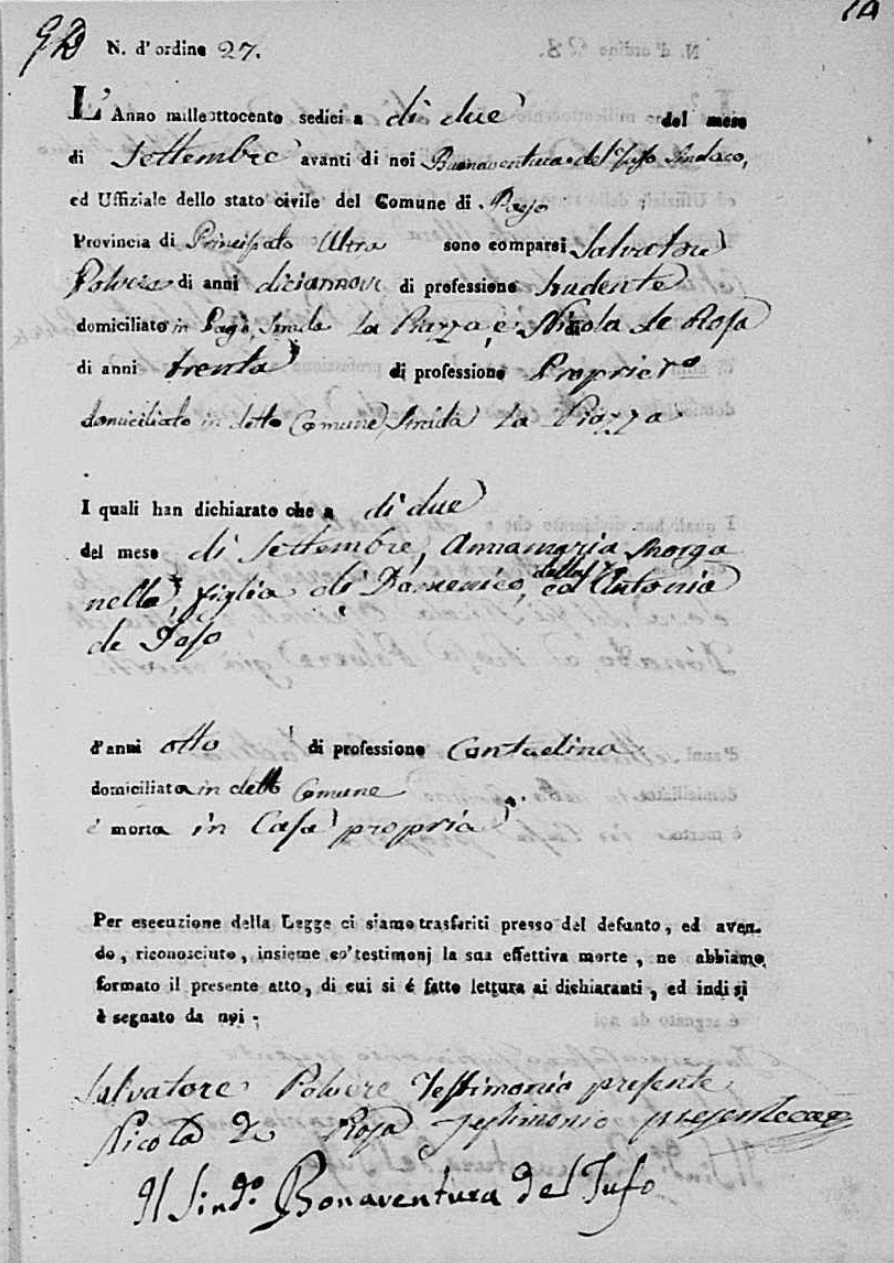 N. d'ordine 27.
L' Anno milleottocento sedici a di due del mese
di Settembre avanti di noi Buonaventura del Tufo Sindaco,
ed Uffiziale dello stato civile del Comune di Pago
Provincia di Principato Ultra sono comparsi Salvatore
Polvere di anni diciannove di professione Studente
domiciliato in Pago, Strada la Piazza, e Nicola de Rosa
di anni trenta di professione Propriet.o
domiciliato in detto Comune, Strada la Piazza
I quali han dichiarato che a di due
del mese di Settembre, Annamaria Morga
nella, figlia di Domenico, ed Antonia
de
d'anni otto di professione Contadina
domiciliata in detto Comune
é morta in Casa propria
Per esecuzione della Legge ci siamo trasferiti presso del defunto, ed aven-
do, riconosciuto, insieme co' testimonj la sua effettiva morte, ne abbiamo
formato il presente atto, di cui si é fatto lettura ai dichiaranti, ed indi si
è segnato da noi:
Salvatore Polvere Testimonio presente
Nicola De Rosa Testimonio presente
Il Sind.o Bonaventura Del Tufo